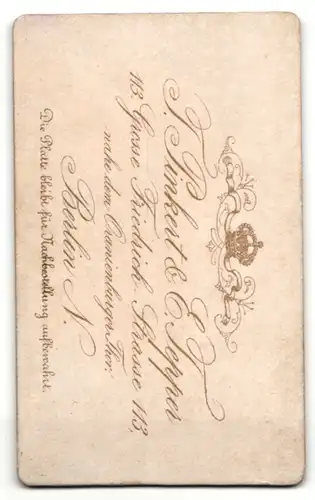 P. Pinkert & C. Tepper
113, Grosse Friedrich-Strasse 113,
nahe dem Oranienburger Thor.
Berlin N.
Die Platte bleibt für Nachbestellung aufbewahrt.